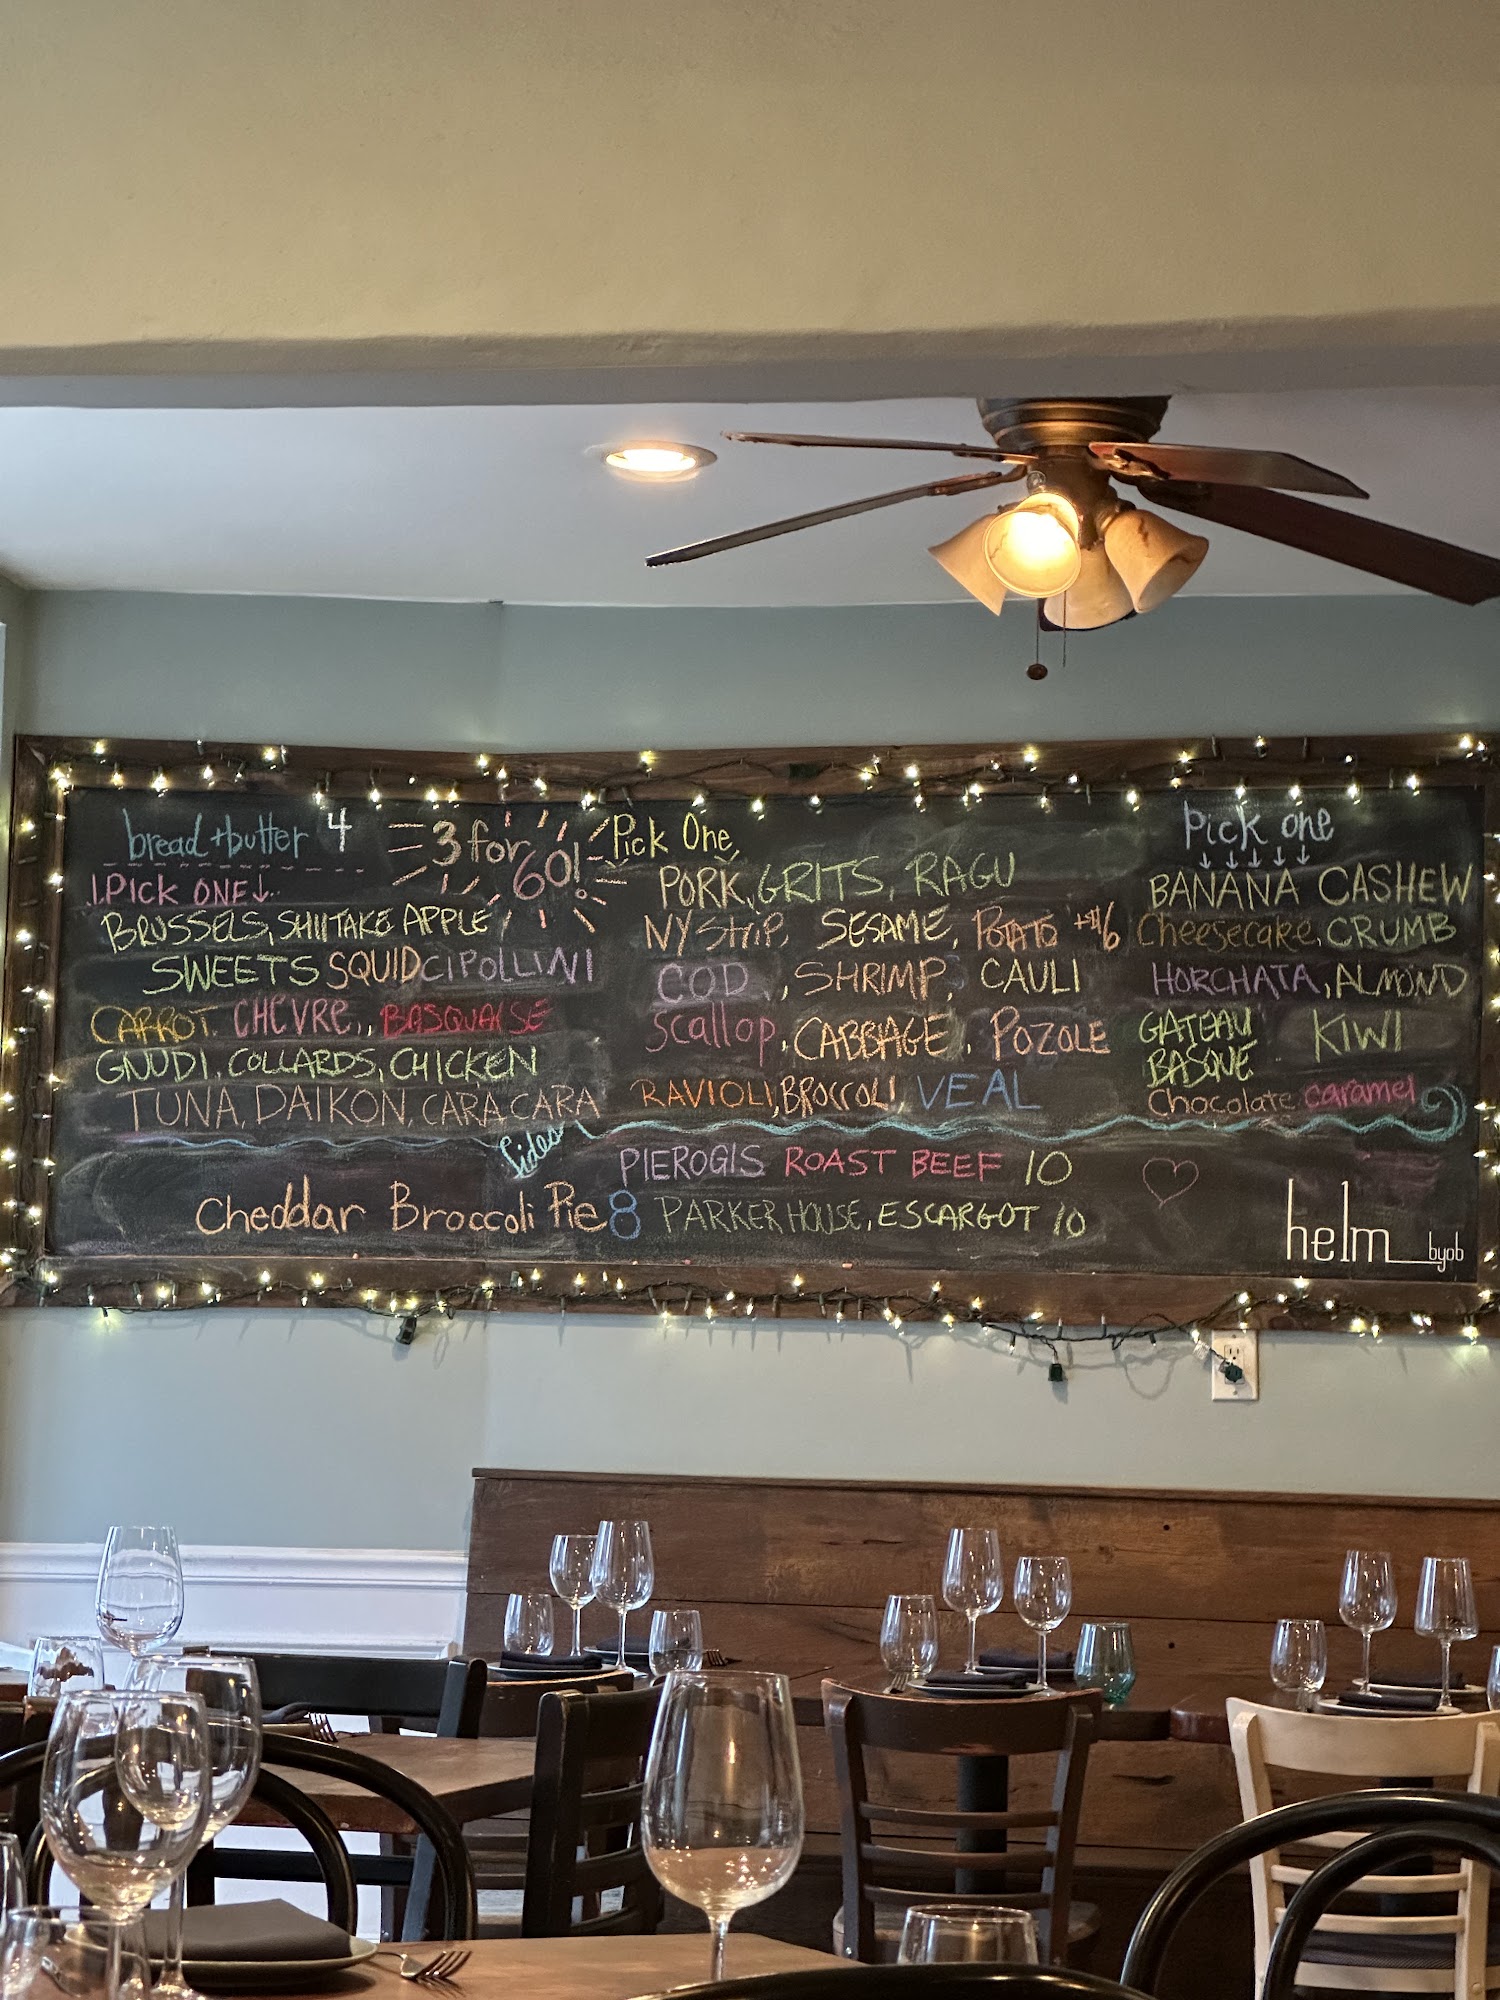 bread + butter 4
3 for 60!
1. PICK ONE ↓
BRUSSELS, SHIITAKE APPLE
SWEETS SQUID CIPOLLINI
CARROT. CHEVRE,, BASQUAISE
GNUDI, COLLARDS, CHICKEN
TUNA, DAIKON, CARA CARA
Pick One,
PORK, GRITS, RAGU
NY Strip, SESAME, POTATO +$16
COD, SHRIMP, CAULI
Scallop, CABBAGE, POZOLE
RAVIOLI, BROCCOLI, VEAL
Pick one
↓ ↓ ↓ ↓ ↓
BANANA CASHEW
Cheesecake, CRUMB
HORCHATA, ALMOND
GATEAU BASQUE KIWI
Chocolate caramel
Sides
PIEROGIS ROAST BEEF 10
Cheddar Broccoli Pie 8
PARKER HOUSE, ESCARGOT 10
helm byob